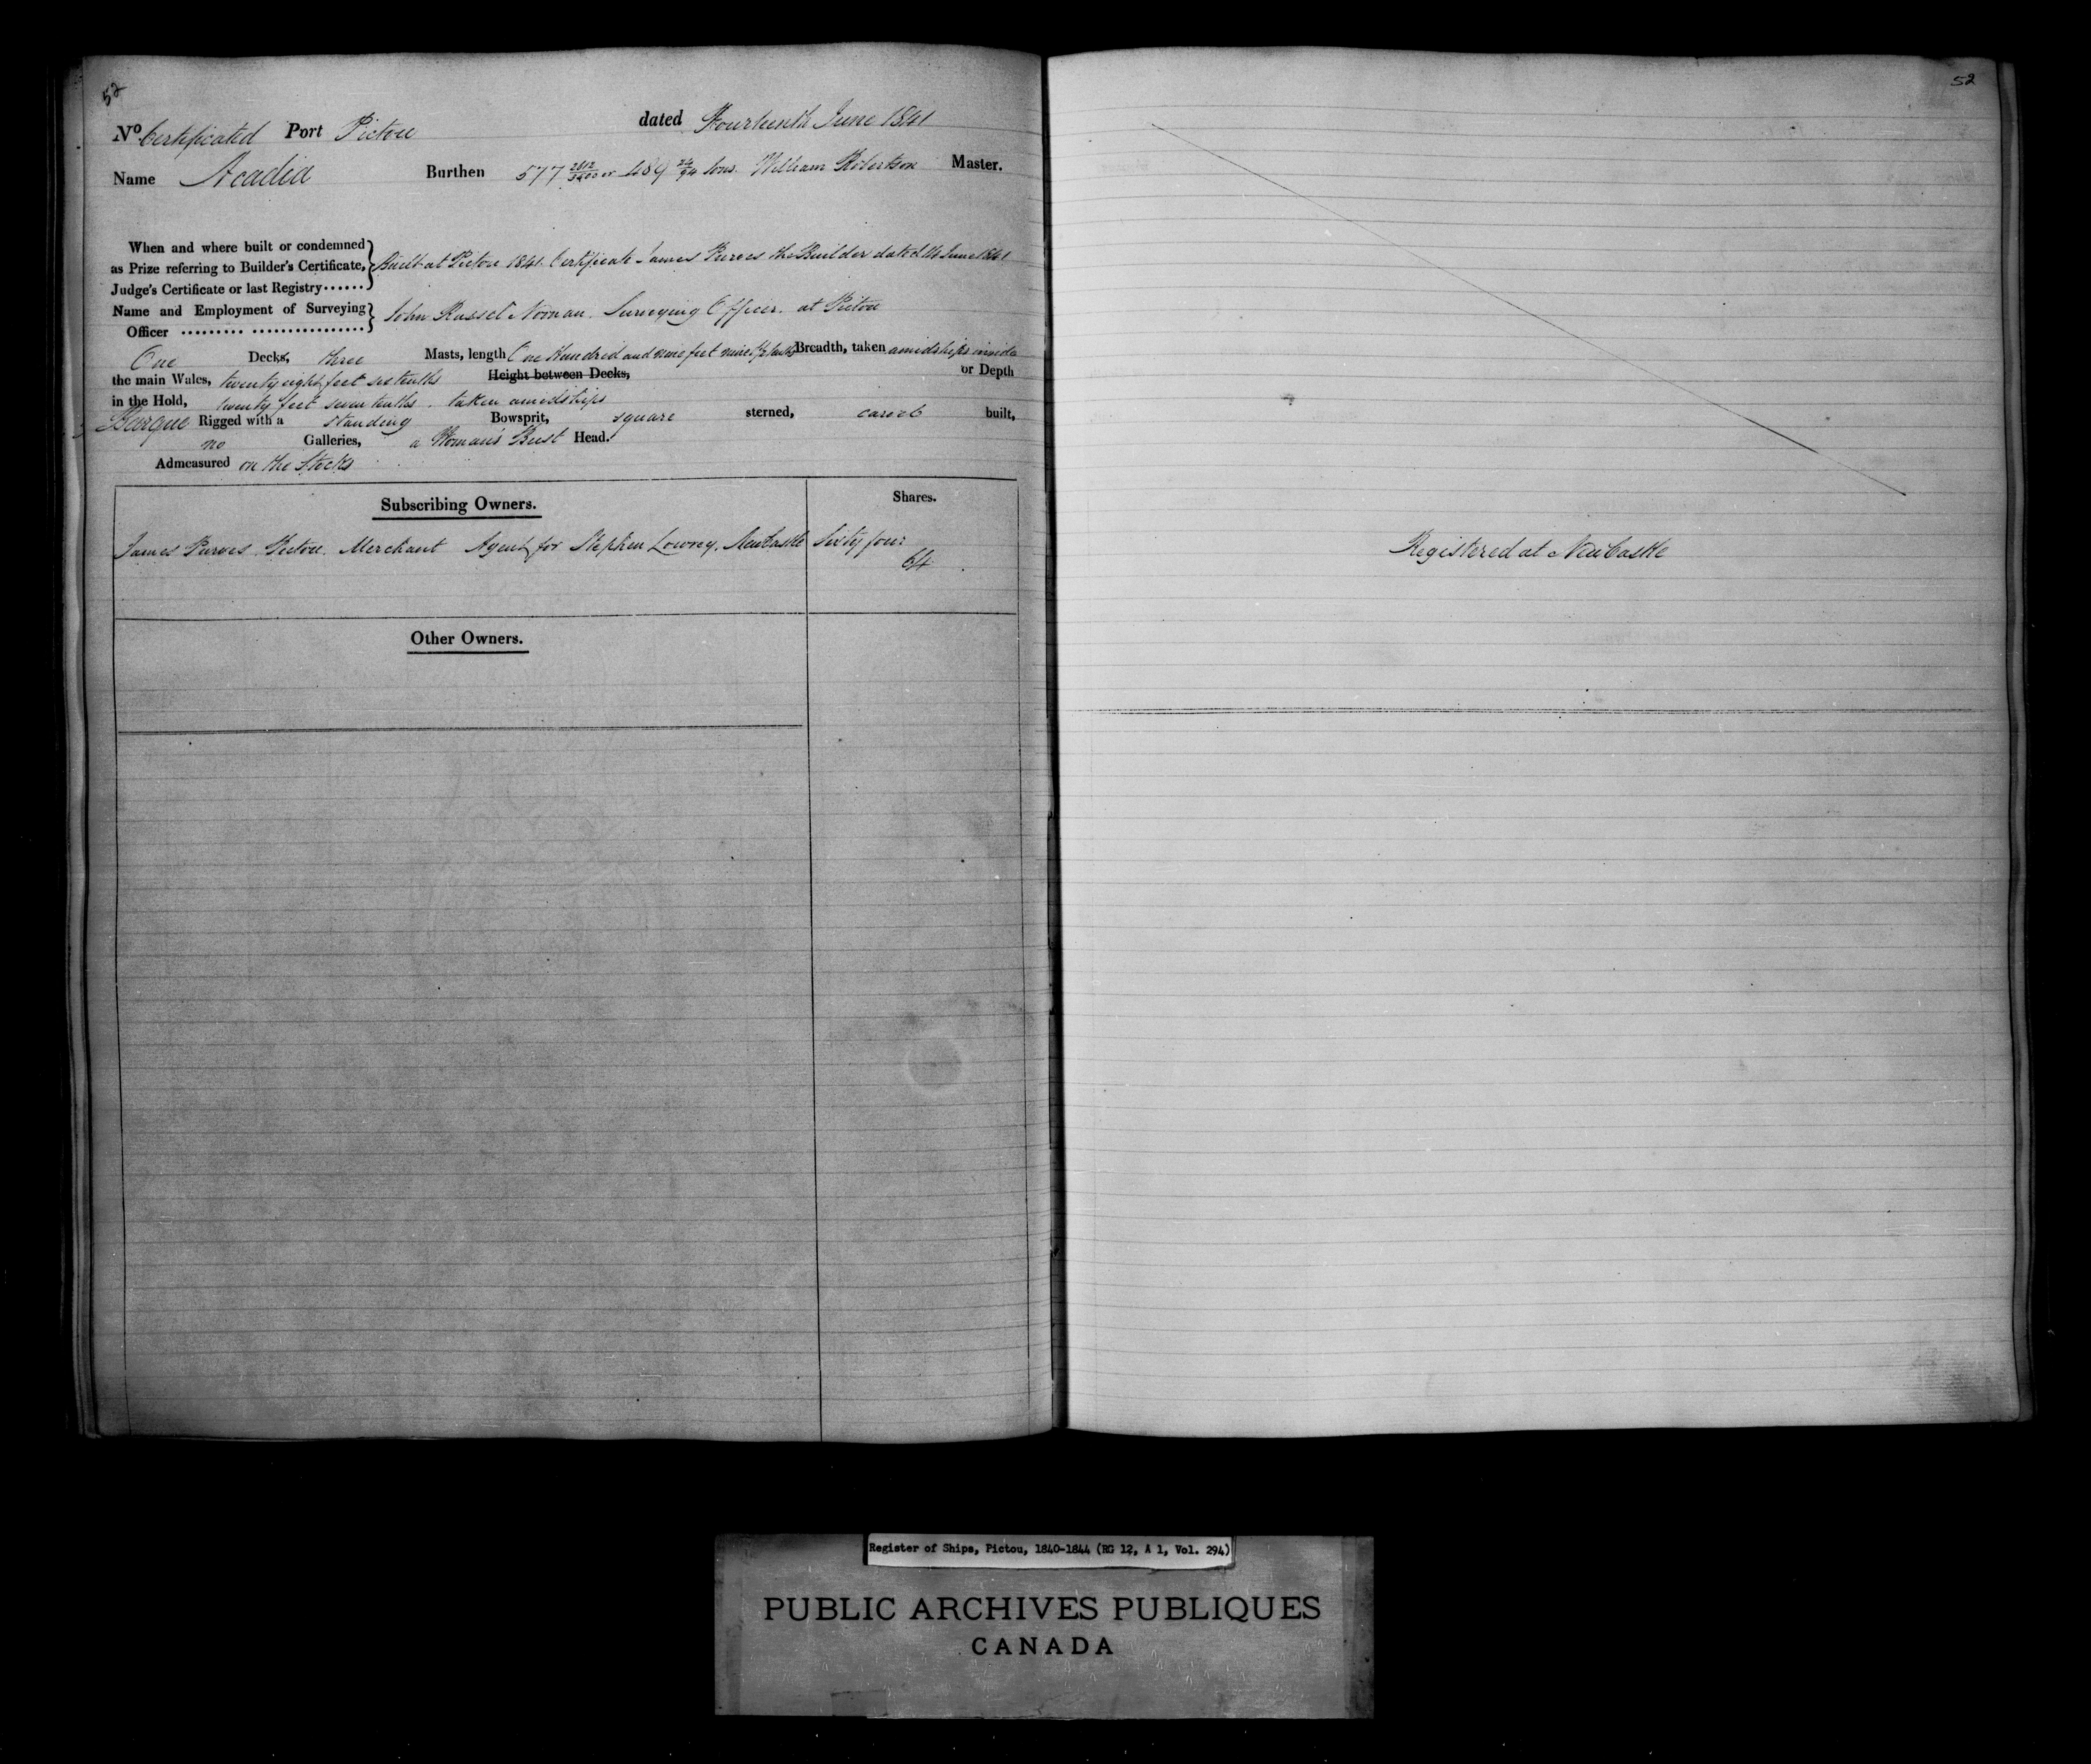 52
No Certificated Port Pictou dated Fourteenth June 1841
Name Acadia Burthen 577 2812/3500 or 489 24/94 tons William Robertson Master.
When and where built or condemned
as Prize referring to Builder's Certificate,
Judge's Certificate or last Registry......
Built at Pictou 1841. Certificate James Purves the Builder dated 14 June 1841
Name and Employment of Surveying
Officer ......... ................
John Russel Noonan. Surveying Officer. at Pictou
One Decks, three Masts, length One Hundred and nine feet nine tenths Breadth, taken amidships inside
the main Wales, twenty eight feet six tenths Height between Decks, or Depth
in the Hold, twenty feet seven tenths. taken amidships
Barque Rigged with a standing Bowsprit, square sterned, carvel built,
no Galleries, a Woman's Bust Head.
Admeasured on the Stocks
Subscribing Owners. Shares.
James Purves Pictou. Merchant Agent for Stephen Lowrey, NewCastle Sixty four
64
Other Owners.
52
Registered at NewCastle
Register of Ships, Pictou, 1840-1844 (RG 12, A 1, Vol. 294)
PUBLIC ARCHIVES PUBLIQUES
CANADA